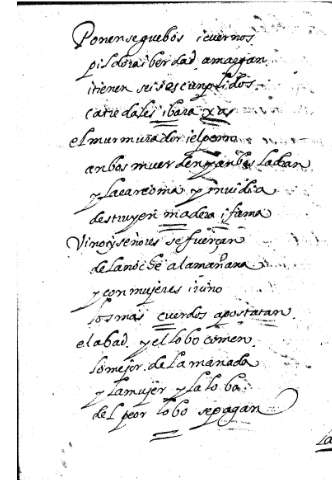 Ponense guebos i cuernos
pildora i berdad amargan
i tienen seis escunplidos
catredales i barajas
el murmurador i el perro
anbos muerden y anbos ladran
y la carcoma y inuidia
destruyen madera i fama
Vino y señores se fuerçan
de la noche a la mañana
y con mujeres i uino
los mas cuerdos apostatan
el abad y el lobo comen
lo mejor de la manada
y la mujer y la loba
del peor lobo se pagan